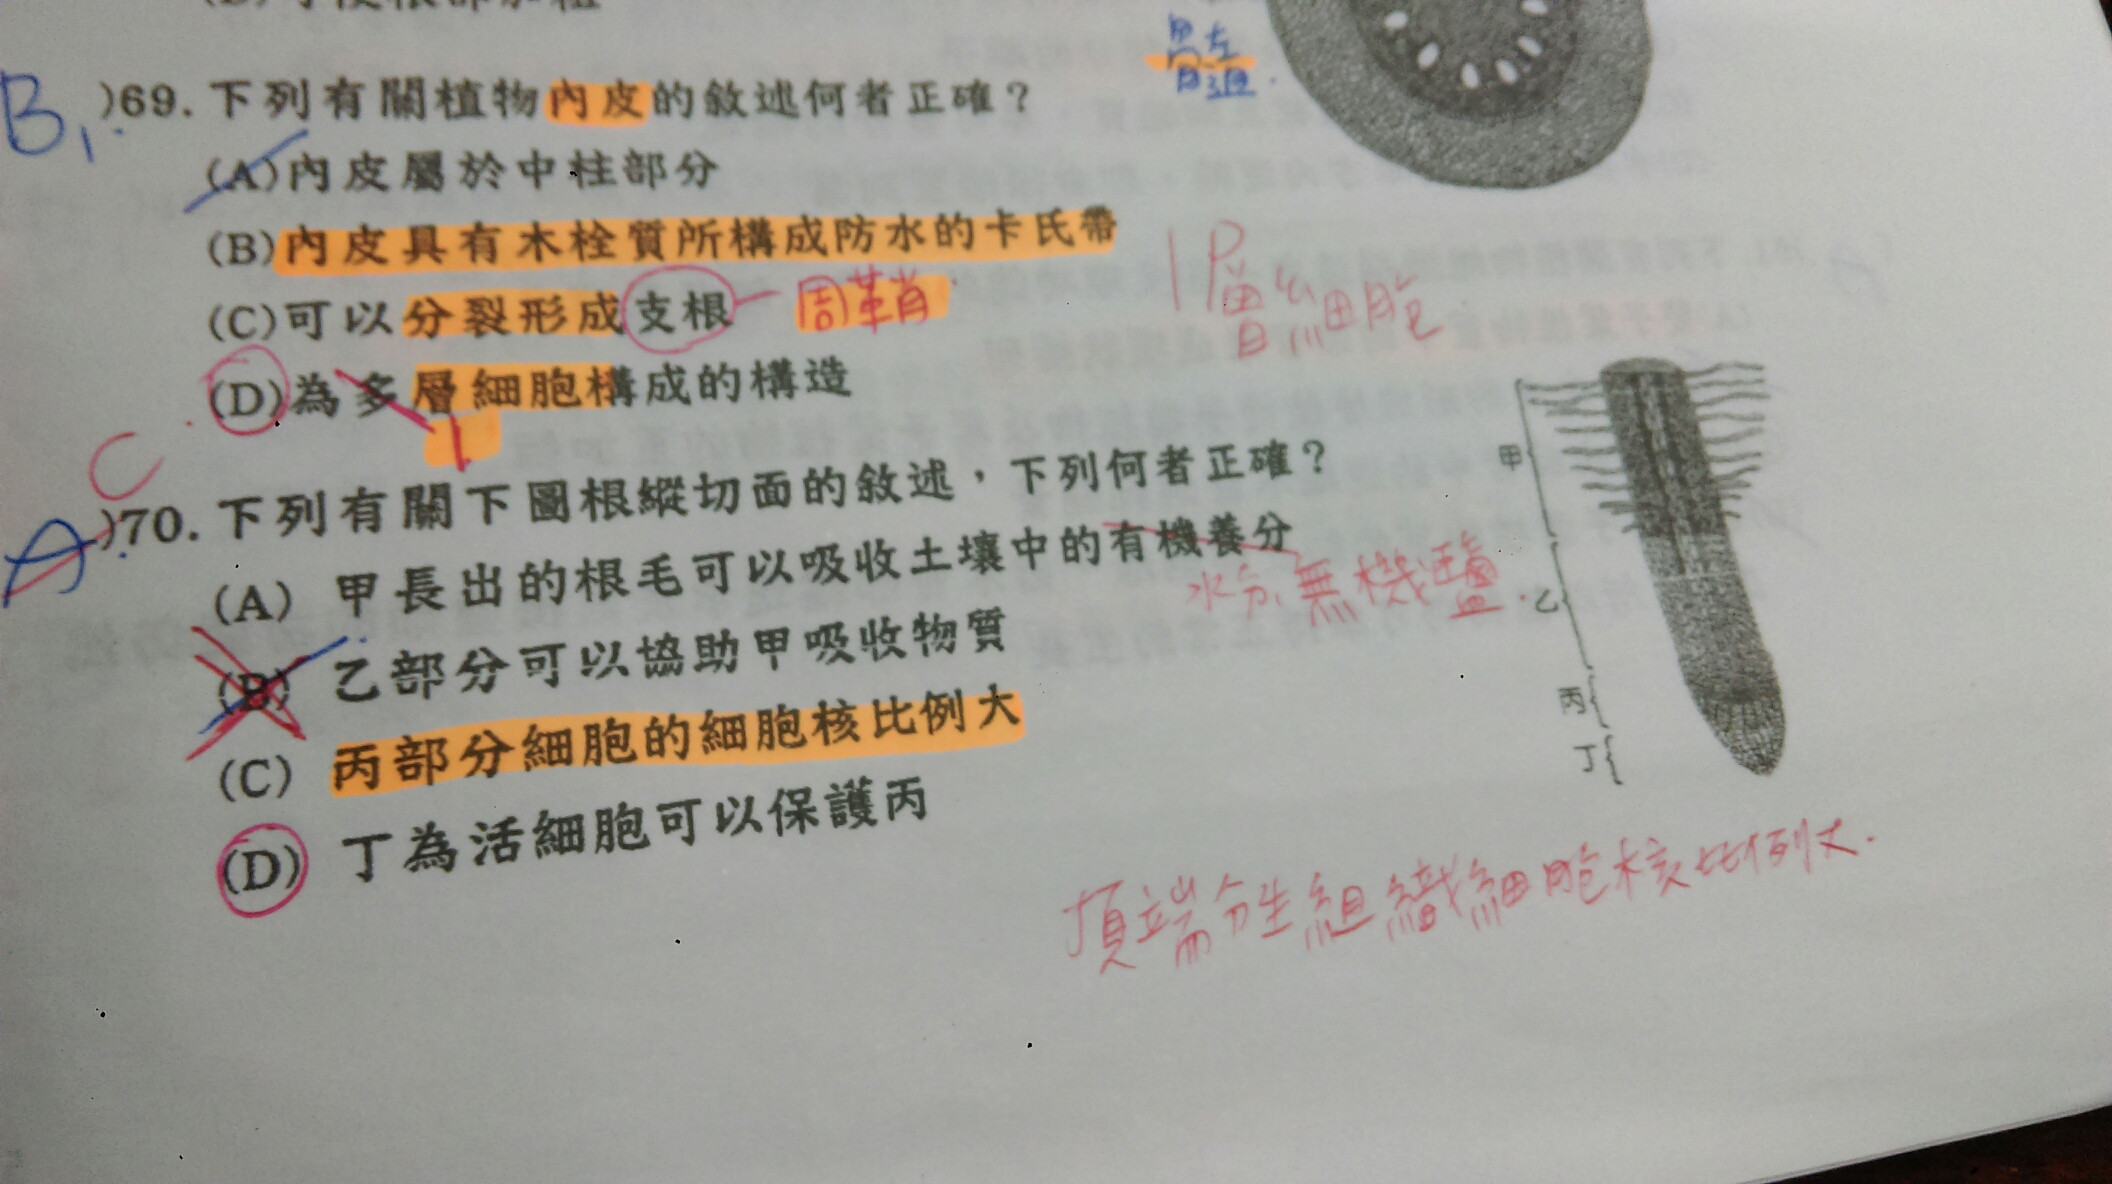 B
)69. 下列有關植物內皮的敘述何者正確？
(A)內皮屬於中柱部分
(B)內皮具有木栓質所構成防水的卡氏帶
(C)可以分裂形成支根
周鞘
1層細胞
(D)為多層細胞構成的構造
1
C
A
)70. 下列有關下圖根縱切面的敘述，下列何者正確？
(A) 甲長出的根毛可以吸收土壤中的有機養分
水分、無機鹽.
(B) 乙部分可以協助甲吸收物質
(C) 丙部分細胞的細胞核比例大
(D) 丁為活細胞可以保護丙
甲
乙
丙
丁
頂端分生組織細胞核比例大.